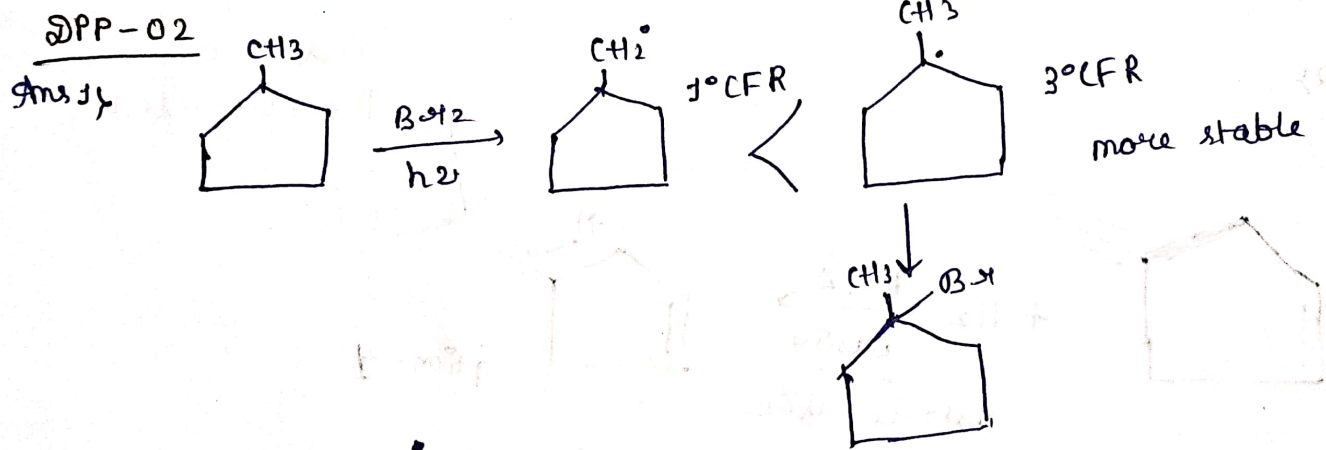 DPP-02
Ans 1
CH3
Br2
hν
CH2•
1° CFR
<
CH3
•
3° CFR
more stable
CH3
Br